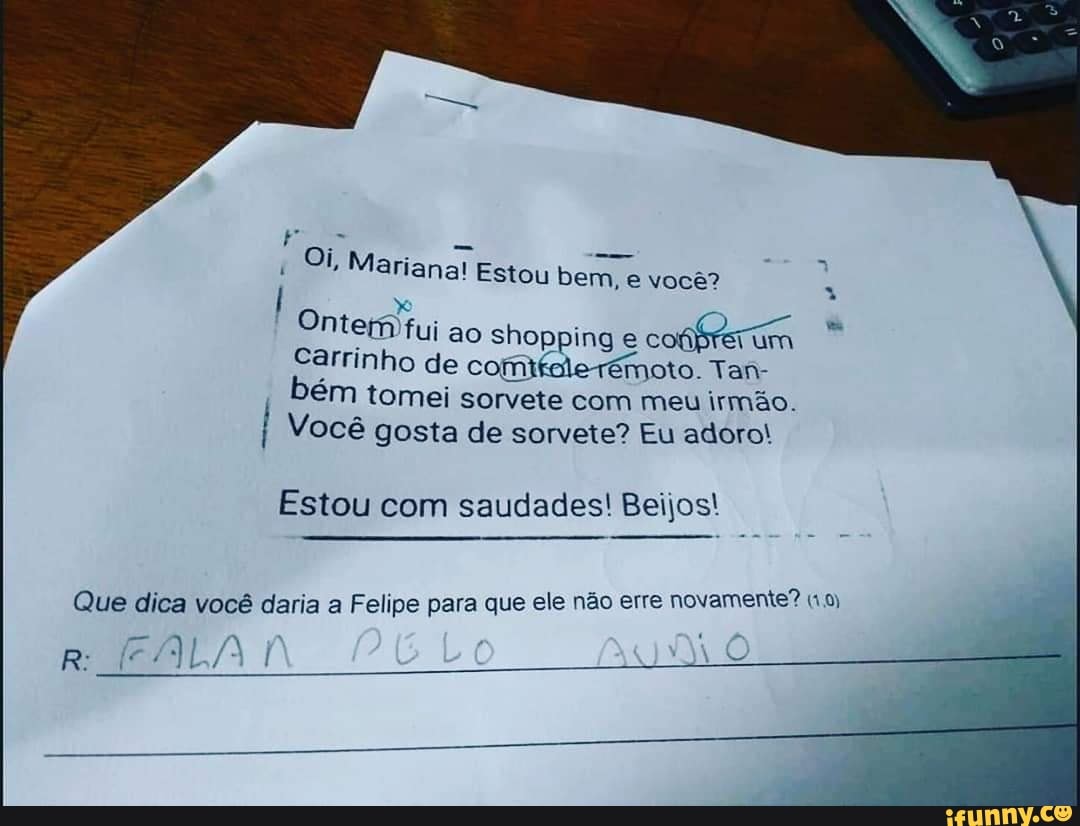 Oi, Mariana! Estou bem, e você?
Ontem fui ao shopping e conprei um
carrinho de comtrole remoto. Tan-
bém tomei sorvete com meu irmão.
Você gosta de sorvete? Eu adoro!
Estou com saudades! Beijos!
Que dica você daria a Felipe para que ele não erre novamente? (1,0)
R: FALAR PELO AUDIO
ifunny.co